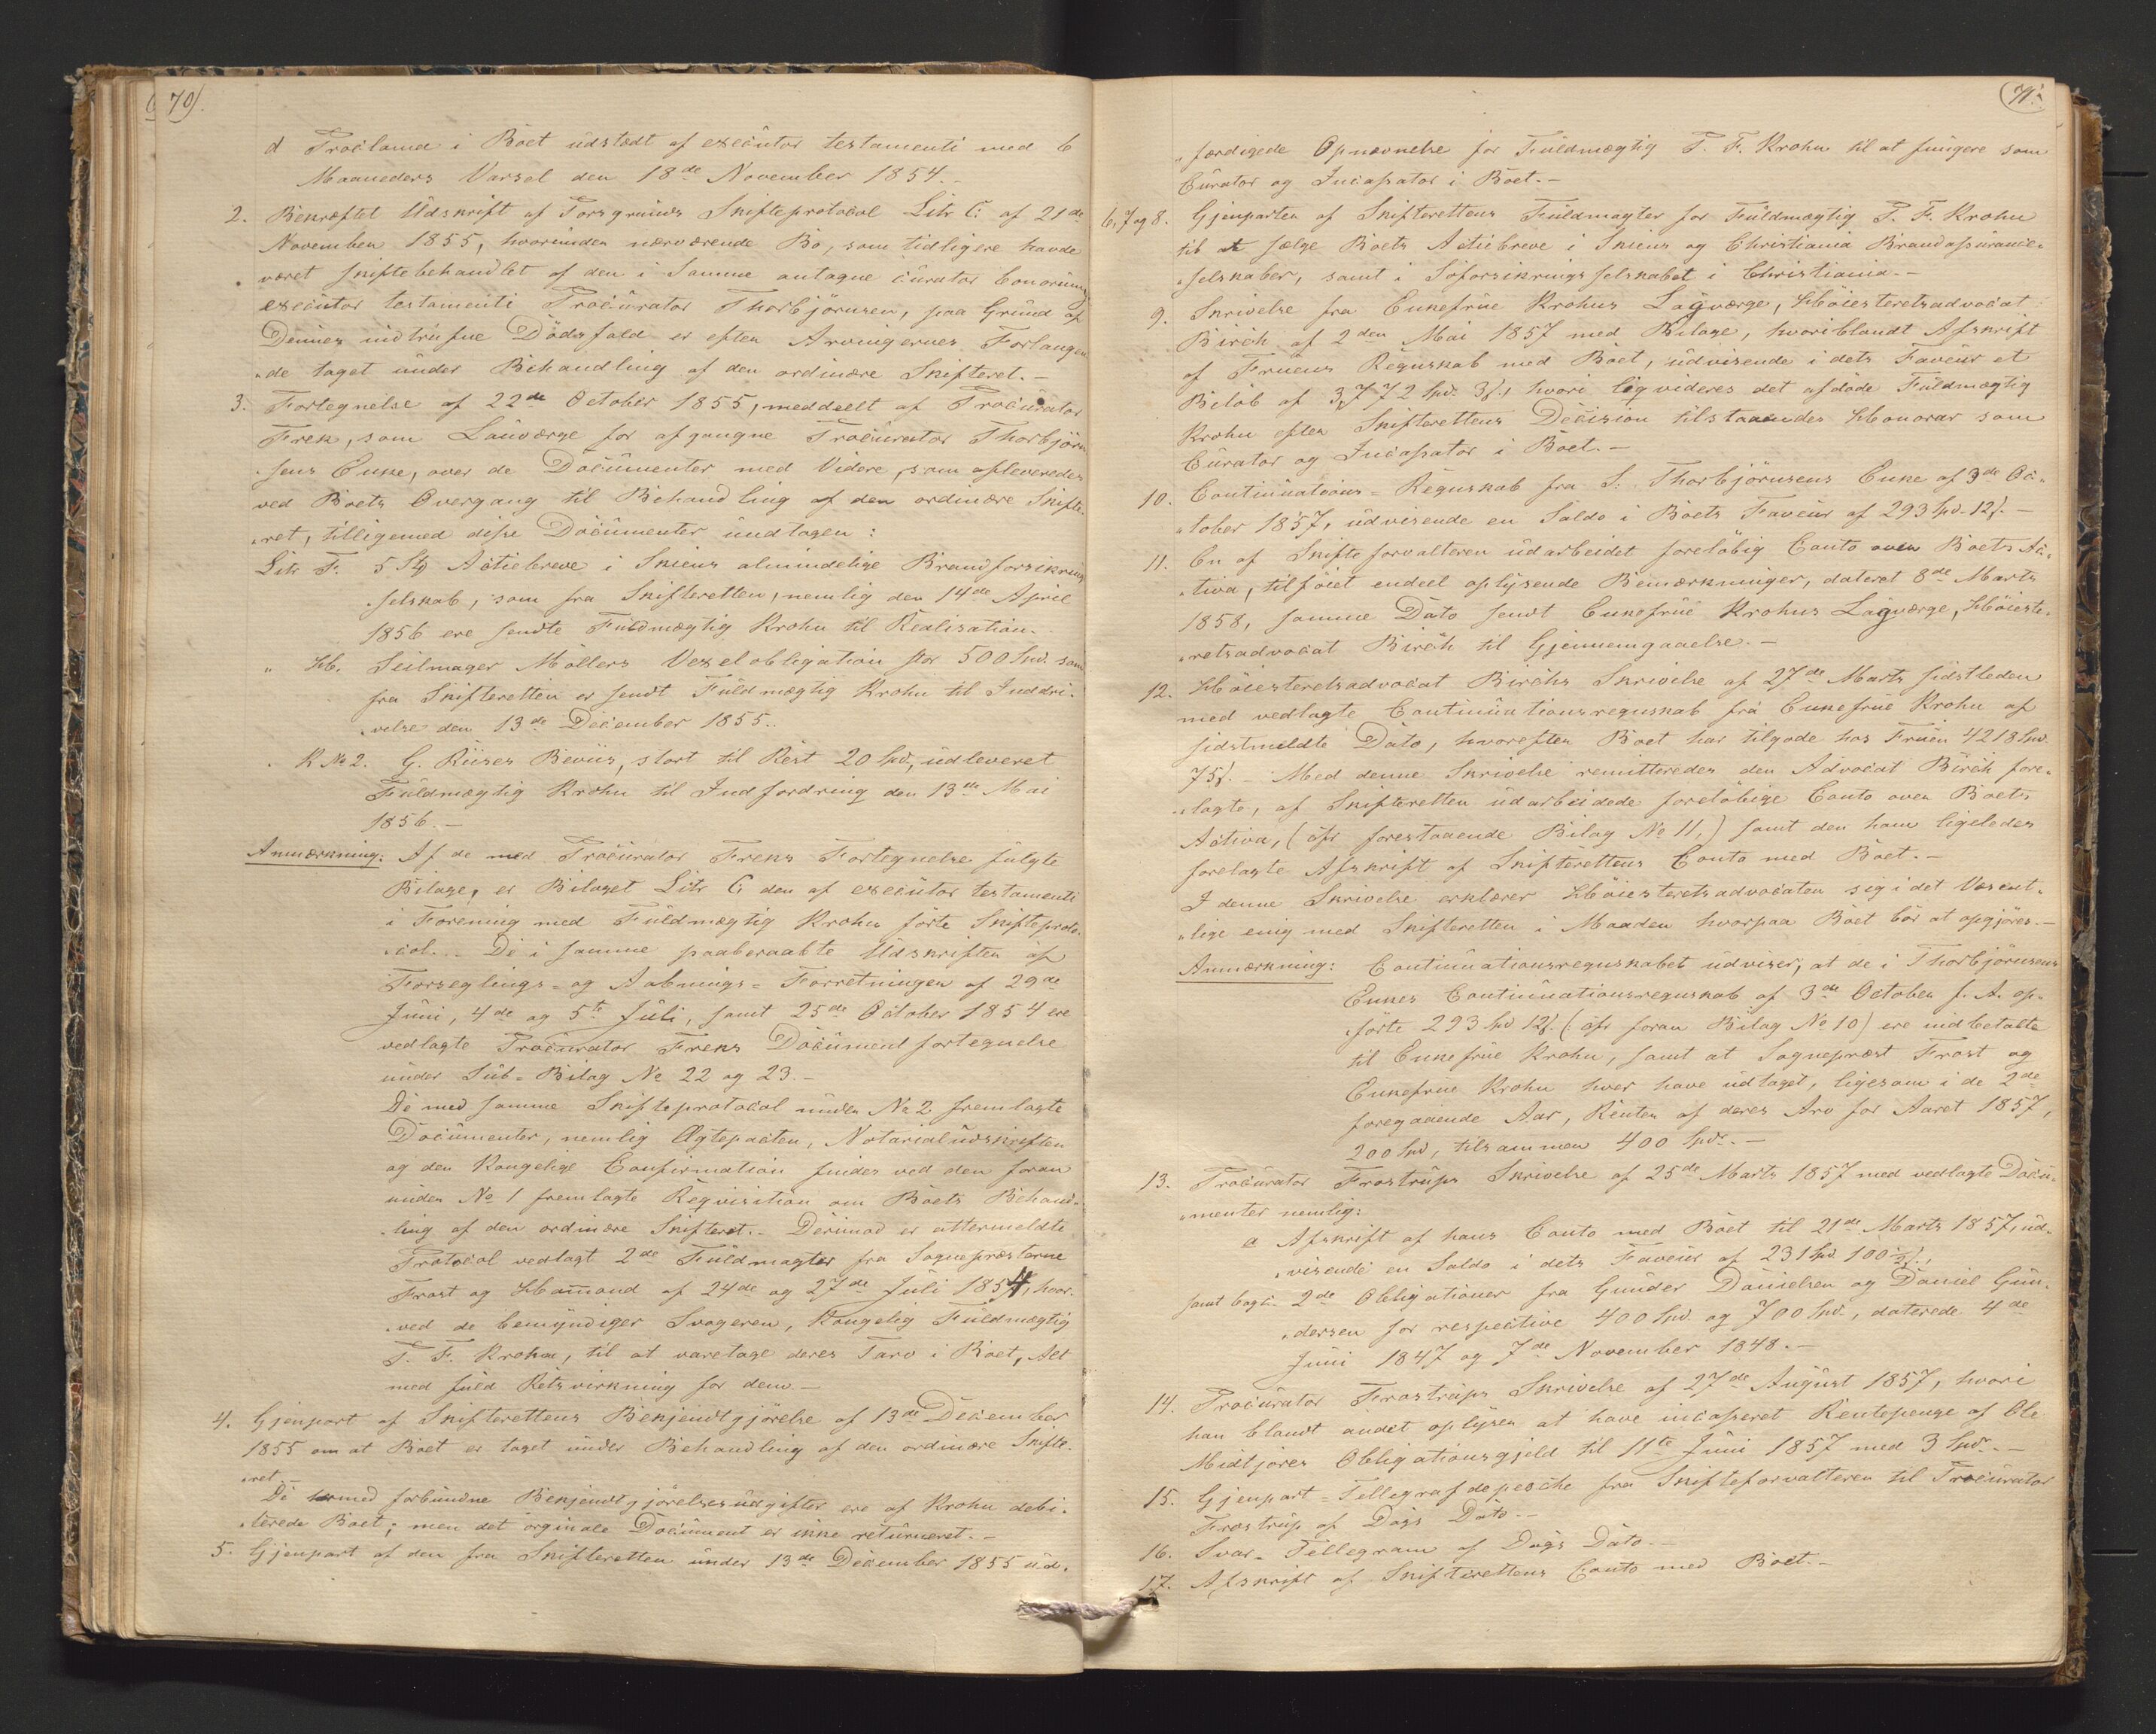 70).
d Proclama i Boet udstædt af executor testamenti med 6
Maaneders Varsel den 18de November 1854.-
2. Bekræftet Udskrift af Porsgrunds Skifteprotocol Litr C. af 21de
November 1855, hvorunder nærværende Bo, som tidligere havde
været skiftebehandlet af den i Samme antagne curator bonorum,
executor testamenti Procurator Thorbjørnsen, paa Grund af
Dennes indtrufne Dødsfald er efter Arvingernes Forlangen-
"de taget under Behandling af den ordinære Skifteret.-
3. Fortegnelse af 22de October 1855, meddeelt af Procurator
Frek, som Laugværge for afgangne Procurator Thorbjørn-
"sens Enke, over de Documenter med Videre, som afleveredes
ved Boets Overgang til Behandling af den ordinære Skifte-
"ret, tilligemed disse Documenter undtagen:
Litr F. 5 Stk Actiebreve i Skiens almindelige Brandforsikrings
"selskab, som fra Skifteretten, nemlig den 14de April
1856 ere sendte Fuldmægtig Krohn til Realisation.-
" H. Seilmager Møllers Vexelobligation stor 500 Spd. som
fra Skifteretten er sendt Fuldmægtig Krohn til Inddri-
"velse den 13de December 1855.
" K No 2. G. Riises Beviis, stort til Rest 20 Spd., udleveret
Fuldmægtig Krohn til Indfordring den 13de Mai
1856.-
Anmærkning: Af de med Procurator Freks Fortegnelse fulgte
Bilage, er Bilaget Litr C. den af executor testamenti
i Forening med Fuldmægtig Krohn førte Skifteproto-
"col.- De i samme paaberaabte Udskrifter af
Forseglings- og Aabnings-Forretningen af 29de
Juni, 4de og 5te Juli, samt 25de October 1854 ere
vedlagte Procurator Freks Documentfortegnelse
under Sub-Bilag No 22 og 23.-
De med samme Skifteprotocol under No 2 fremlagte
Documenter, nemlig Ægtepacten, Notarialudskriften
og den Kongelige Confirmation findes ved den foran
under No 1 fremlagte Reqvisition om Boets Behand-
"ling af den ordinære Skifteret.- Derimod er attermeldte
Protocol vedlagt 2de Fuldmagter fra Sognepræsterne
Frost og Hammond af 24de og 27de Juli 1854, hvor-
"ved de bemyndiger Svogeren, Kongelig Fuldmægtig
T. F. Krohn, til at varetage deres Tarv i Boet, Alt
med fuld Retsvirkning for dem.-
4. Gjenpart af Skifterettens Bekjendtgjørelse af 13de December
1855 om at Boet er taget under Behandling af den ordinære Skifte-
"ret.-
De hermed forbundne Bekjendtgjørelsesudgifter ere af Krohn debi-
"terede Boet; men det orginale Document er ikke returneret.-
5. Gjenpart af den fra Skifteretten under 13de December 1855 ud-
71.
"færdigede Opnævnelse for Fuldmægtig T. F. Krohn til at fungere som
Curator og Incassator i Boet.-
6, 7 og 8. Gjenparter af Skifterettens Fuldmagter for Fuldmægtig T. F. Krohn
til at sælge Boets Actiebreve i Skiens og Christiania Brandassurance-
"selskaber, samt i Søforsikringsselskabet i Christiania.-
9. Skrivelse fra Enkefrue Krohns Lagværge, Høiesteretsadvocat
Birch af 2den Mai 1857 med Bilage, hvoriblandt Afskrift
af Fruens Regnskab med Boet, udvisende i dets Faveur et
Beløb af 3,772 Spd. 3 s., hvori liqvideres det afdøde Fuldmægtig
Krohn efter Skifterettens Decision tilstaaendes Honorar som
Curator og Incassator i Boet.-
10. Continuations-Regnskab fra S. Thorbjørnsens Enke af 3de Oc-
"tober 1857, udvisende en Saldo i Boets Faveur af 293 Spd. 12 s.-
11. En af Skifteforvalteren udarbeidet foreløbig Conto over Boets Ac-
"tiva, tilføiet endeel oplysende Bemærkninger, dateret 8de Marts
1858, samme Dato sendt Enkefrue Krohns Lagværge, Høieste-
"retsadvocat Birch til Gjennemgaaelse.-
12. Høiesteretsadvocat Birchs Skrivelse af 27de Marts sidstleden
med vedlagte Continuationsregnskab fra Enkefrue Krohn af
sidstmeldte Dato, hvorefter Boet har tilgode hos Fruen 4218 Spd.
75 s.- Med denne Skrivelse remitteredes den Advocat Birch fore-
"lagte, af Skifteretten udarbeidede foreløbige Conto over Boets
Activa, (cfr forestaaende Bilag No 11,) samt den ham ligeledes
forelagte Afskrift af Skifterettens Conto med Boet.-
I denne Skrivelse erklærer Høiesteretsadvocaten sig i det Væsent-
"lige enig med Skifteretten i Maaden hvorpaa Boet bør at opgjøres.-
Anmærkning: Continuationsregnskabet udviser, at de i Thorbjørnsens
Enkes Continuationsregnskab af 3de October f. A. op-
"førte 293 Spd 12 s. (: cfr foran Bilag No 10) ere indbetalte
til Enkefrue Krohn, samt at Sognepræst Frost og
Enkefrue Krohn hver have udtaget, ligesom i de 2de
foregaaende Aar, Renten af deres Arv for Aaret 1857,
200 Spd, tilsammen 400 Spd.-
13. Procurator Frostrups Skrivelse af 25de Marts 1857 med vedlagte Docu-
"menter nemlig:
a Afskrift af hans Conto med Boet til 21de Marts 1857, ud-
"visende en Saldo i dets Faveur af 231 Spd. 100½ s.,
samt bogt. 2de Obligationer fra Gunder Danielsen og Daniel Gun-
"dersen for respective 400 Spd. og 700 Spd., daterede 4de
Juni 1847 og 7de November 1848.-
14. Procurator Frostrups Skrivelse af 27de August 1857, hvori
han blandt andet oplyser at have incasseret Rentepenge af Ole
Midtjores Obligationsgjeld til 11te Juni 1857 med 3 Spd.-
15. Gjenpart-Tellegrafdepeche fra Skifteforvalteren til Procurator
Frostrup af Dags Dato.-
16. Svar-Tellegram af Dags Dato.-
17. Afskrift af Skifterettens Conto med Boet.-